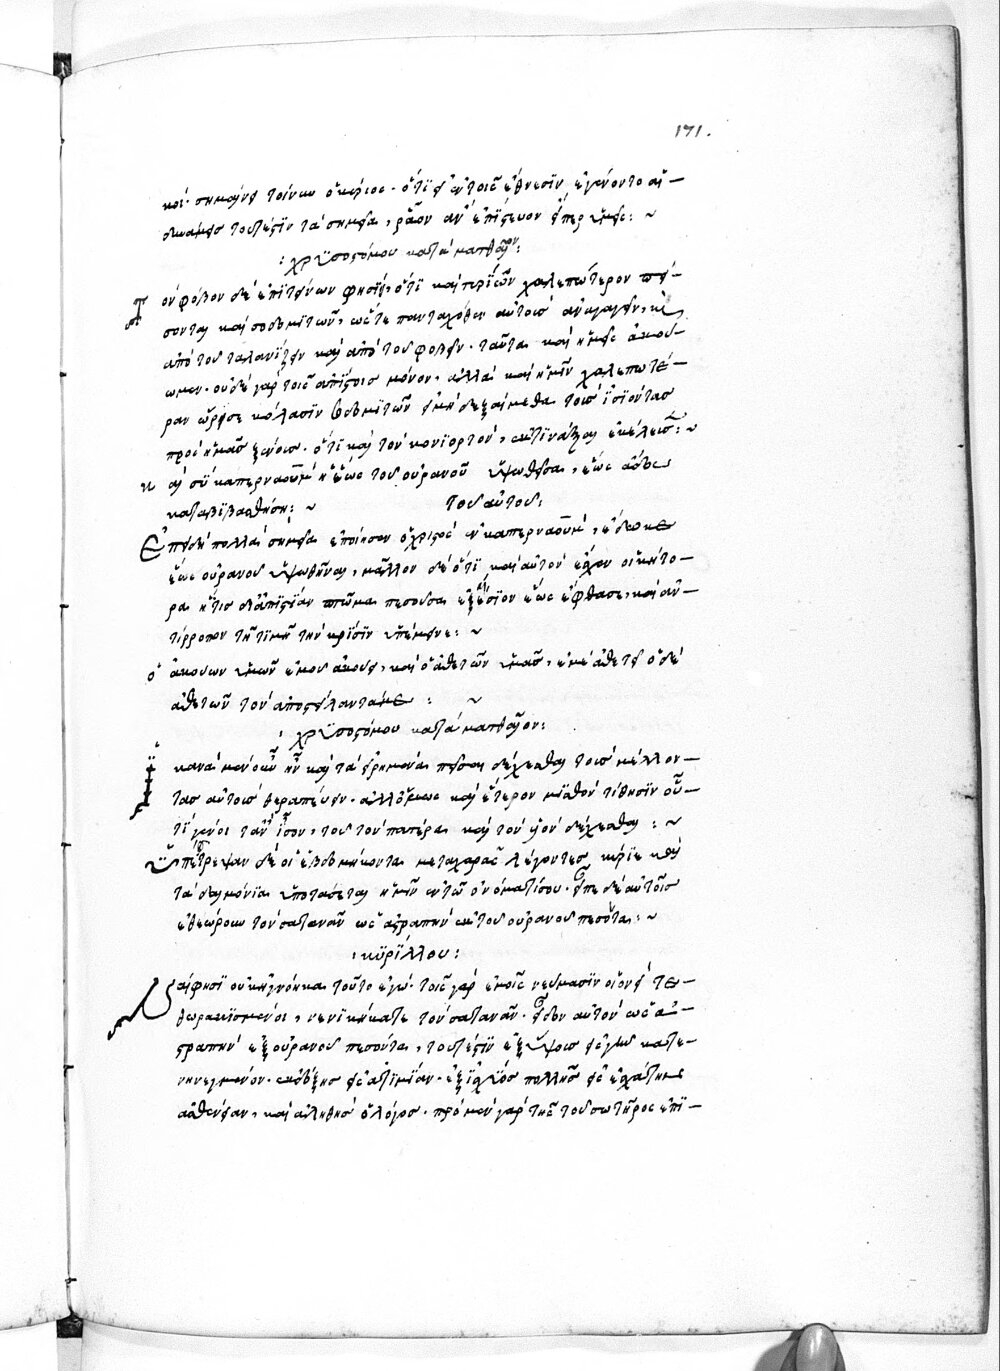 171.
κοί· σημαίνει τοίνυν ὁ κύριος· ὅτι εἰ ἐν τοῖς ἔθνεσιν ἐγένοντο αἱ
δυνάμεις τουτέστιν τὰ σημεῖα, ῥᾶον ἂν ἐπίστευον ἤπερ ὑμεῖς: ~
: χρυσοστόμου κατὰ ματθαῖον:
Τὸν φόβον δὲ ἐπιτείνων φησίν, ὅτι καὶ περὶ ὧν χαλεπώτερον πεί-
σονται καὶ σοδομιτῶν, ὥστε πανταχόθεν αὐτοὺς ἀναγαγεῖν, καὶ
ἀπὸ τοῦ ταλανίζειν καὶ ἀπὸ τοῦ φοβεῖν· ταῦτα καὶ ἡμεῖς ἀκού-
ωμεν· οὐδὲ γὰρ τοῖς ἀπίστοις μόνον, ἀλλὰ καὶ ἡμῖν χαλεπωτέ-
ραν ὥρισε κόλασιν σοδομιτῶν εἰ μὴ δεξαίμεθα τοὺς εἰσιόντας
πρὸς ἡμᾶς ξένους· ὅτι καὶ τὸν κονιορτὸν, ἐκτινάξαι ἐκέλευσε: ~
κ αὶ σὺ καπερναοὺμ ἡ ἕως τοῦ οὐρανοῦ ὑψωθεῖσα, ἕως ἅδου
καταβιβασθήσῃ: ~ τοῦ αὐτοῦ:
Ἐπειδὴ πολλὰ σημεῖα ἐποίησεν ὁ χριστὸς ἐν καπερναοὺμ, ἔδοκε
ἕως οὐρανοῦ ὑψωθῆναι, μᾶλλον δὲ ὅτι καὶ αὐτὸν ἔχεν οἰκήτο-
ρα ἥτις δι' ἀπιστίαν πτῶμα πεσοῦσα ἐξαίσιον ἕως ἔφθασε, καὶ ἀν-
τίρροπον τῇ τιμῇ τὴν κρίσιν ὑπέμεινε: ~
ὁ ἀκούων ὑμῶν ἐμοῦ ἀκούει, καὶ ὁ ἀθετῶν ὑμᾶς, ἐμὲ ἀθετεῖ ὁ δὲ
ἀθετῶν τὸν ἀποστείλαντά με : ~
: χρυσοστόμου κατὰ ματθαῖον:
Ἱκανὰ μὲν οὖν ἦν καὶ τὰ εἰρημένα πεῖσαι δέχεσθαι τοὺς μέλλον-
τας αὐτοὺς θεραπεύειν· ἀλλ' ὅμως καὶ ἕτερον μισθὸν τίθησιν οὗ
τί γένοι τ' ἂν ἴσον, τοῦ τὸν πατέρα καὶ τὸν υἱὸν δέχεσθαι : ~
Ὑπέστρεψαν δὲ οἱ ἑβδομήκοντα μετὰ χαρᾶς λέγοντες κύριε καὶ
τὰ δαιμόνια ὑποτάσεται ἡμῖν ἐν τῷ ὀνόματί σου· εἶπε δὲ αὐτοῖς
ἐθεώρουν τὸν σατανᾶν ὡς ἀστραπὴν ἐκ τοῦ οὐρανοῦ πεσόντα: ~
: κυρίλλου:
Ναί φησι οὐκ ἠγνόηκα τοῦτο ἐγώ· τοῖς γὰρ ἐμοῖς νεύμασιν οἱονεὶ τε-
θωρακισμένοι, νενικήκατε τὸν σατανᾶν· εἶδον αὐτὸν ὡς ἀ-
στραπὴν ἐξ οὐρανοῦ πεσόντα, τουτέστιν ἐξ ὕψους εἰς γῆν κατε-
νηνεγμένον· ἐκ δόξης εἰς ἀτιμίαν· ἐξ ἰσχύος πολλῆς εἰς ἐσχάτην
ἀσθένειαν, καὶ ἀληθὴς ὁ λόγος· πρὸ μὲν γὰρ τῆς τοῦ σωτῆρος ἐπι-